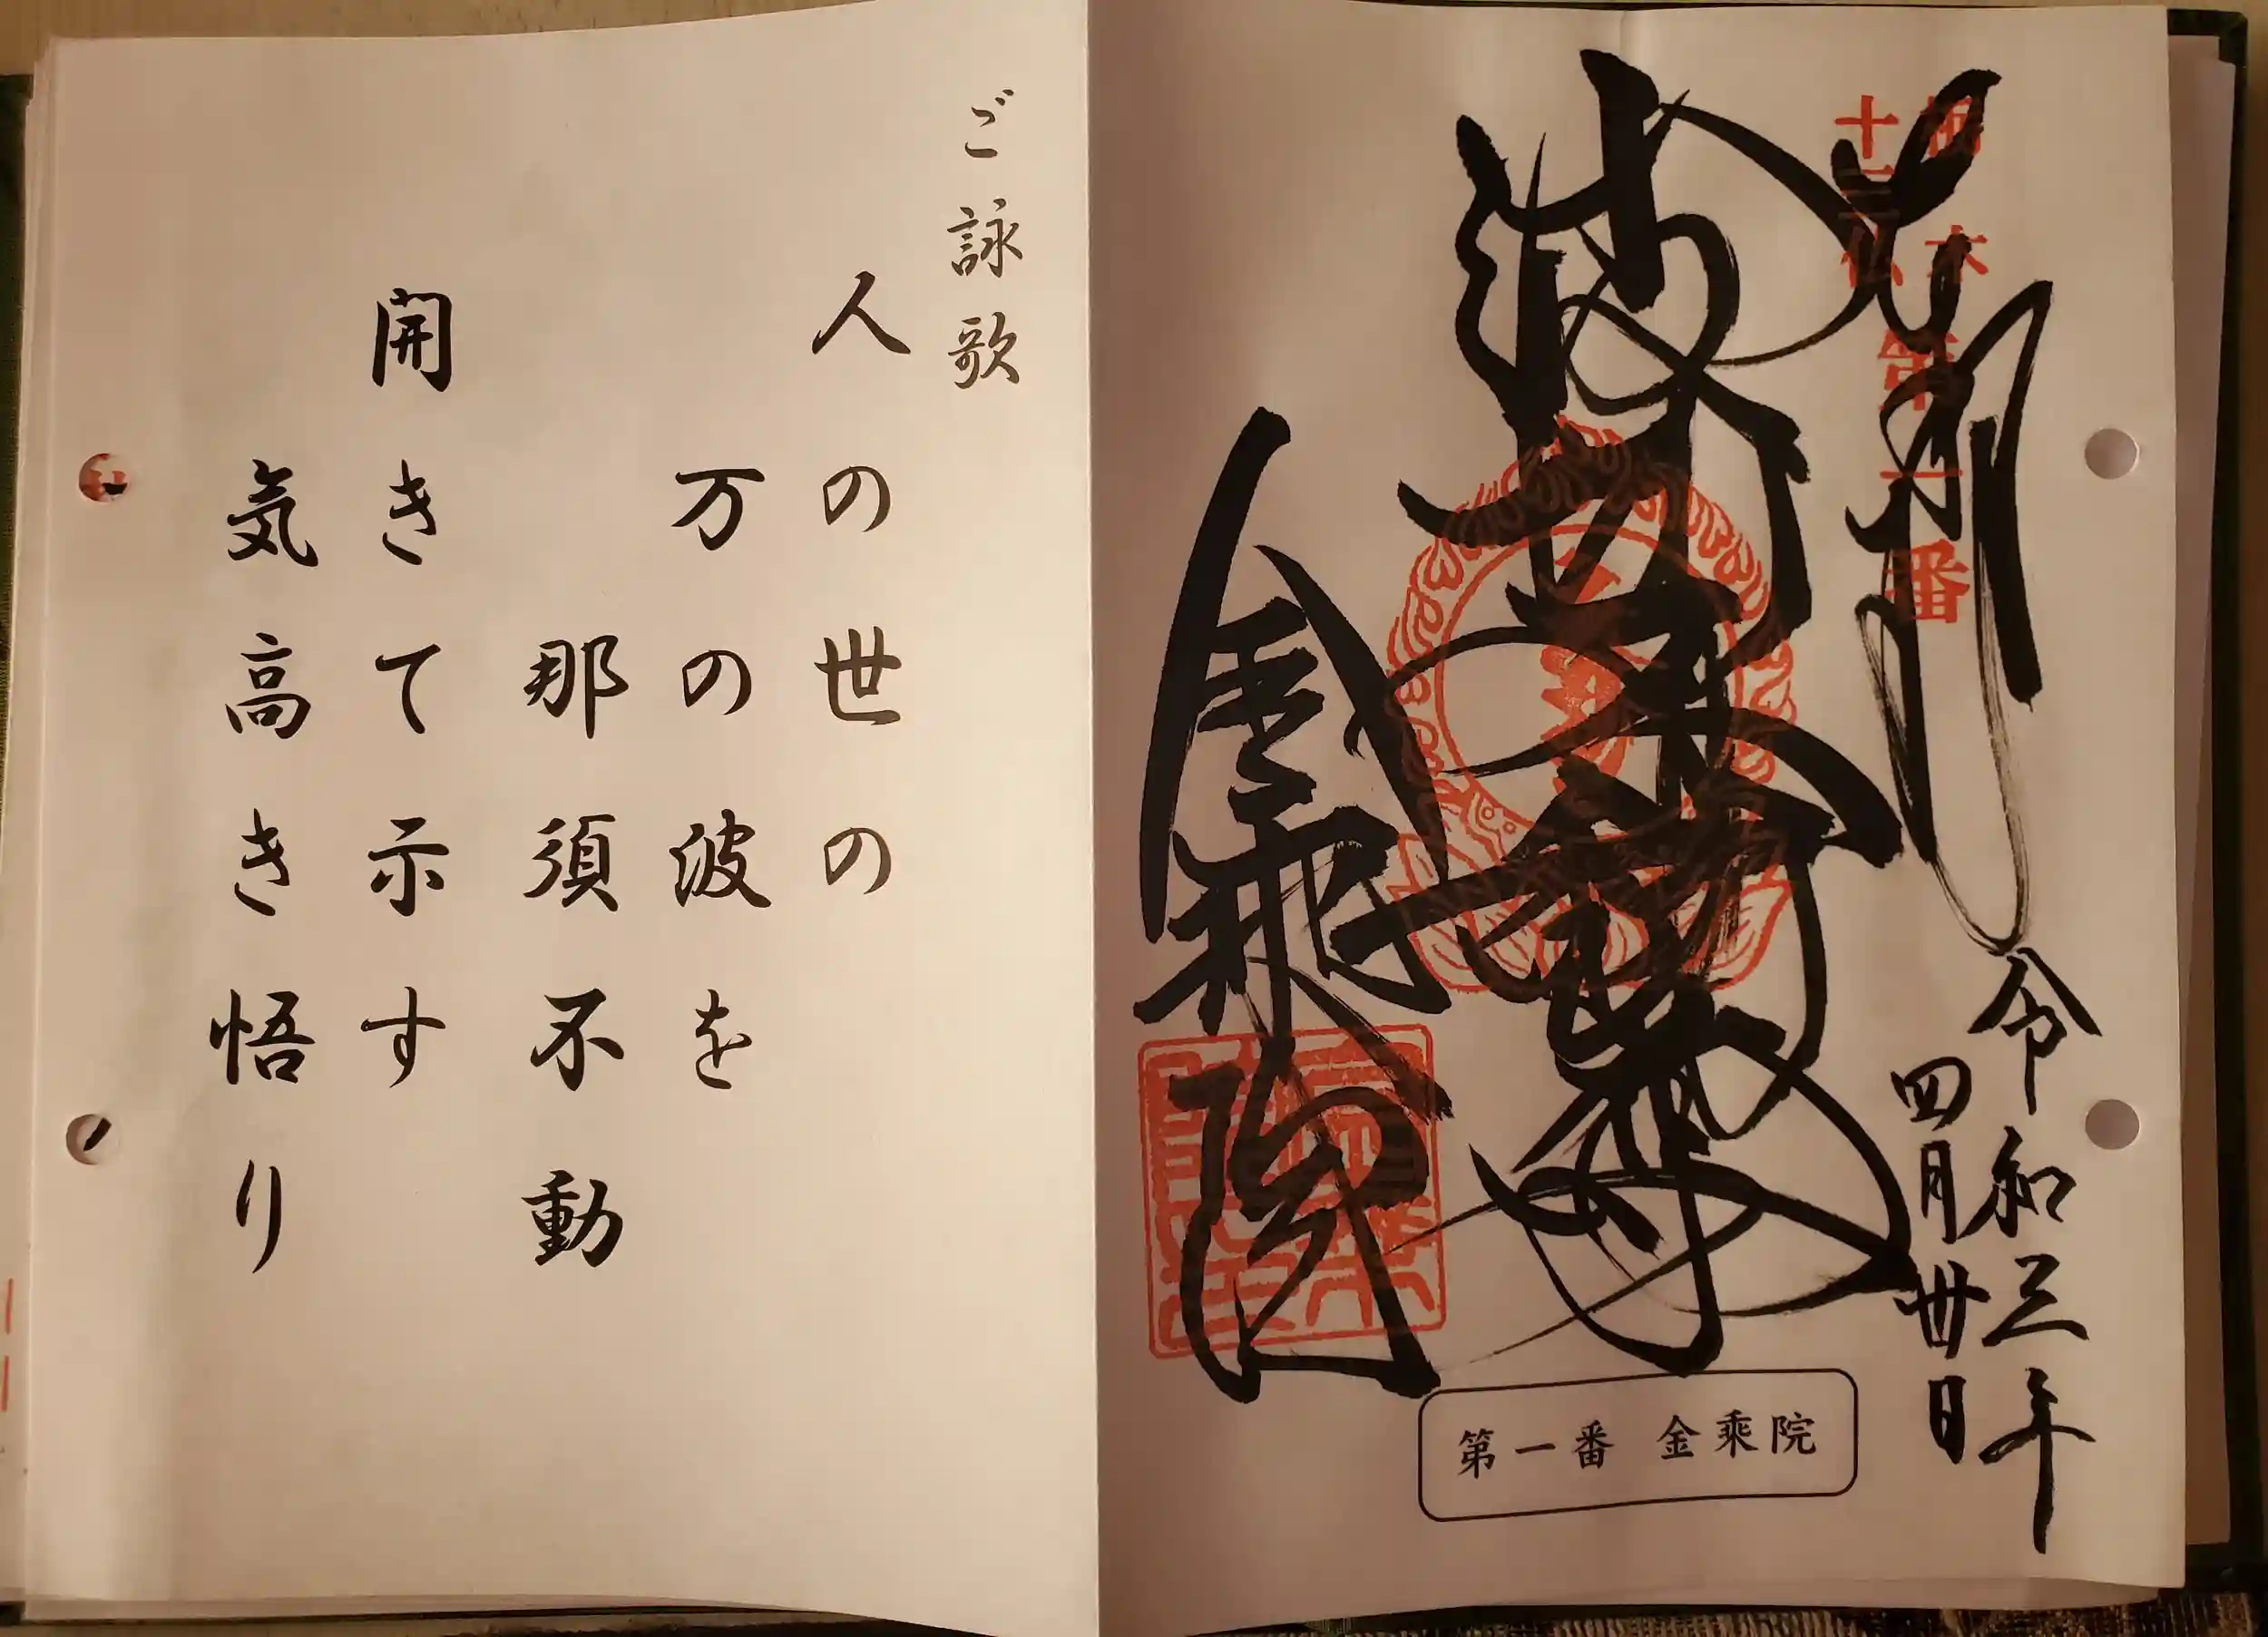 栃木
十三仏
第一番
令和三年
四月卅日
波切不動尊
金乗院
第一番 金乗院
ご詠歌
人の世の
万の波を
那須不動
開きて示す
気高き悟り